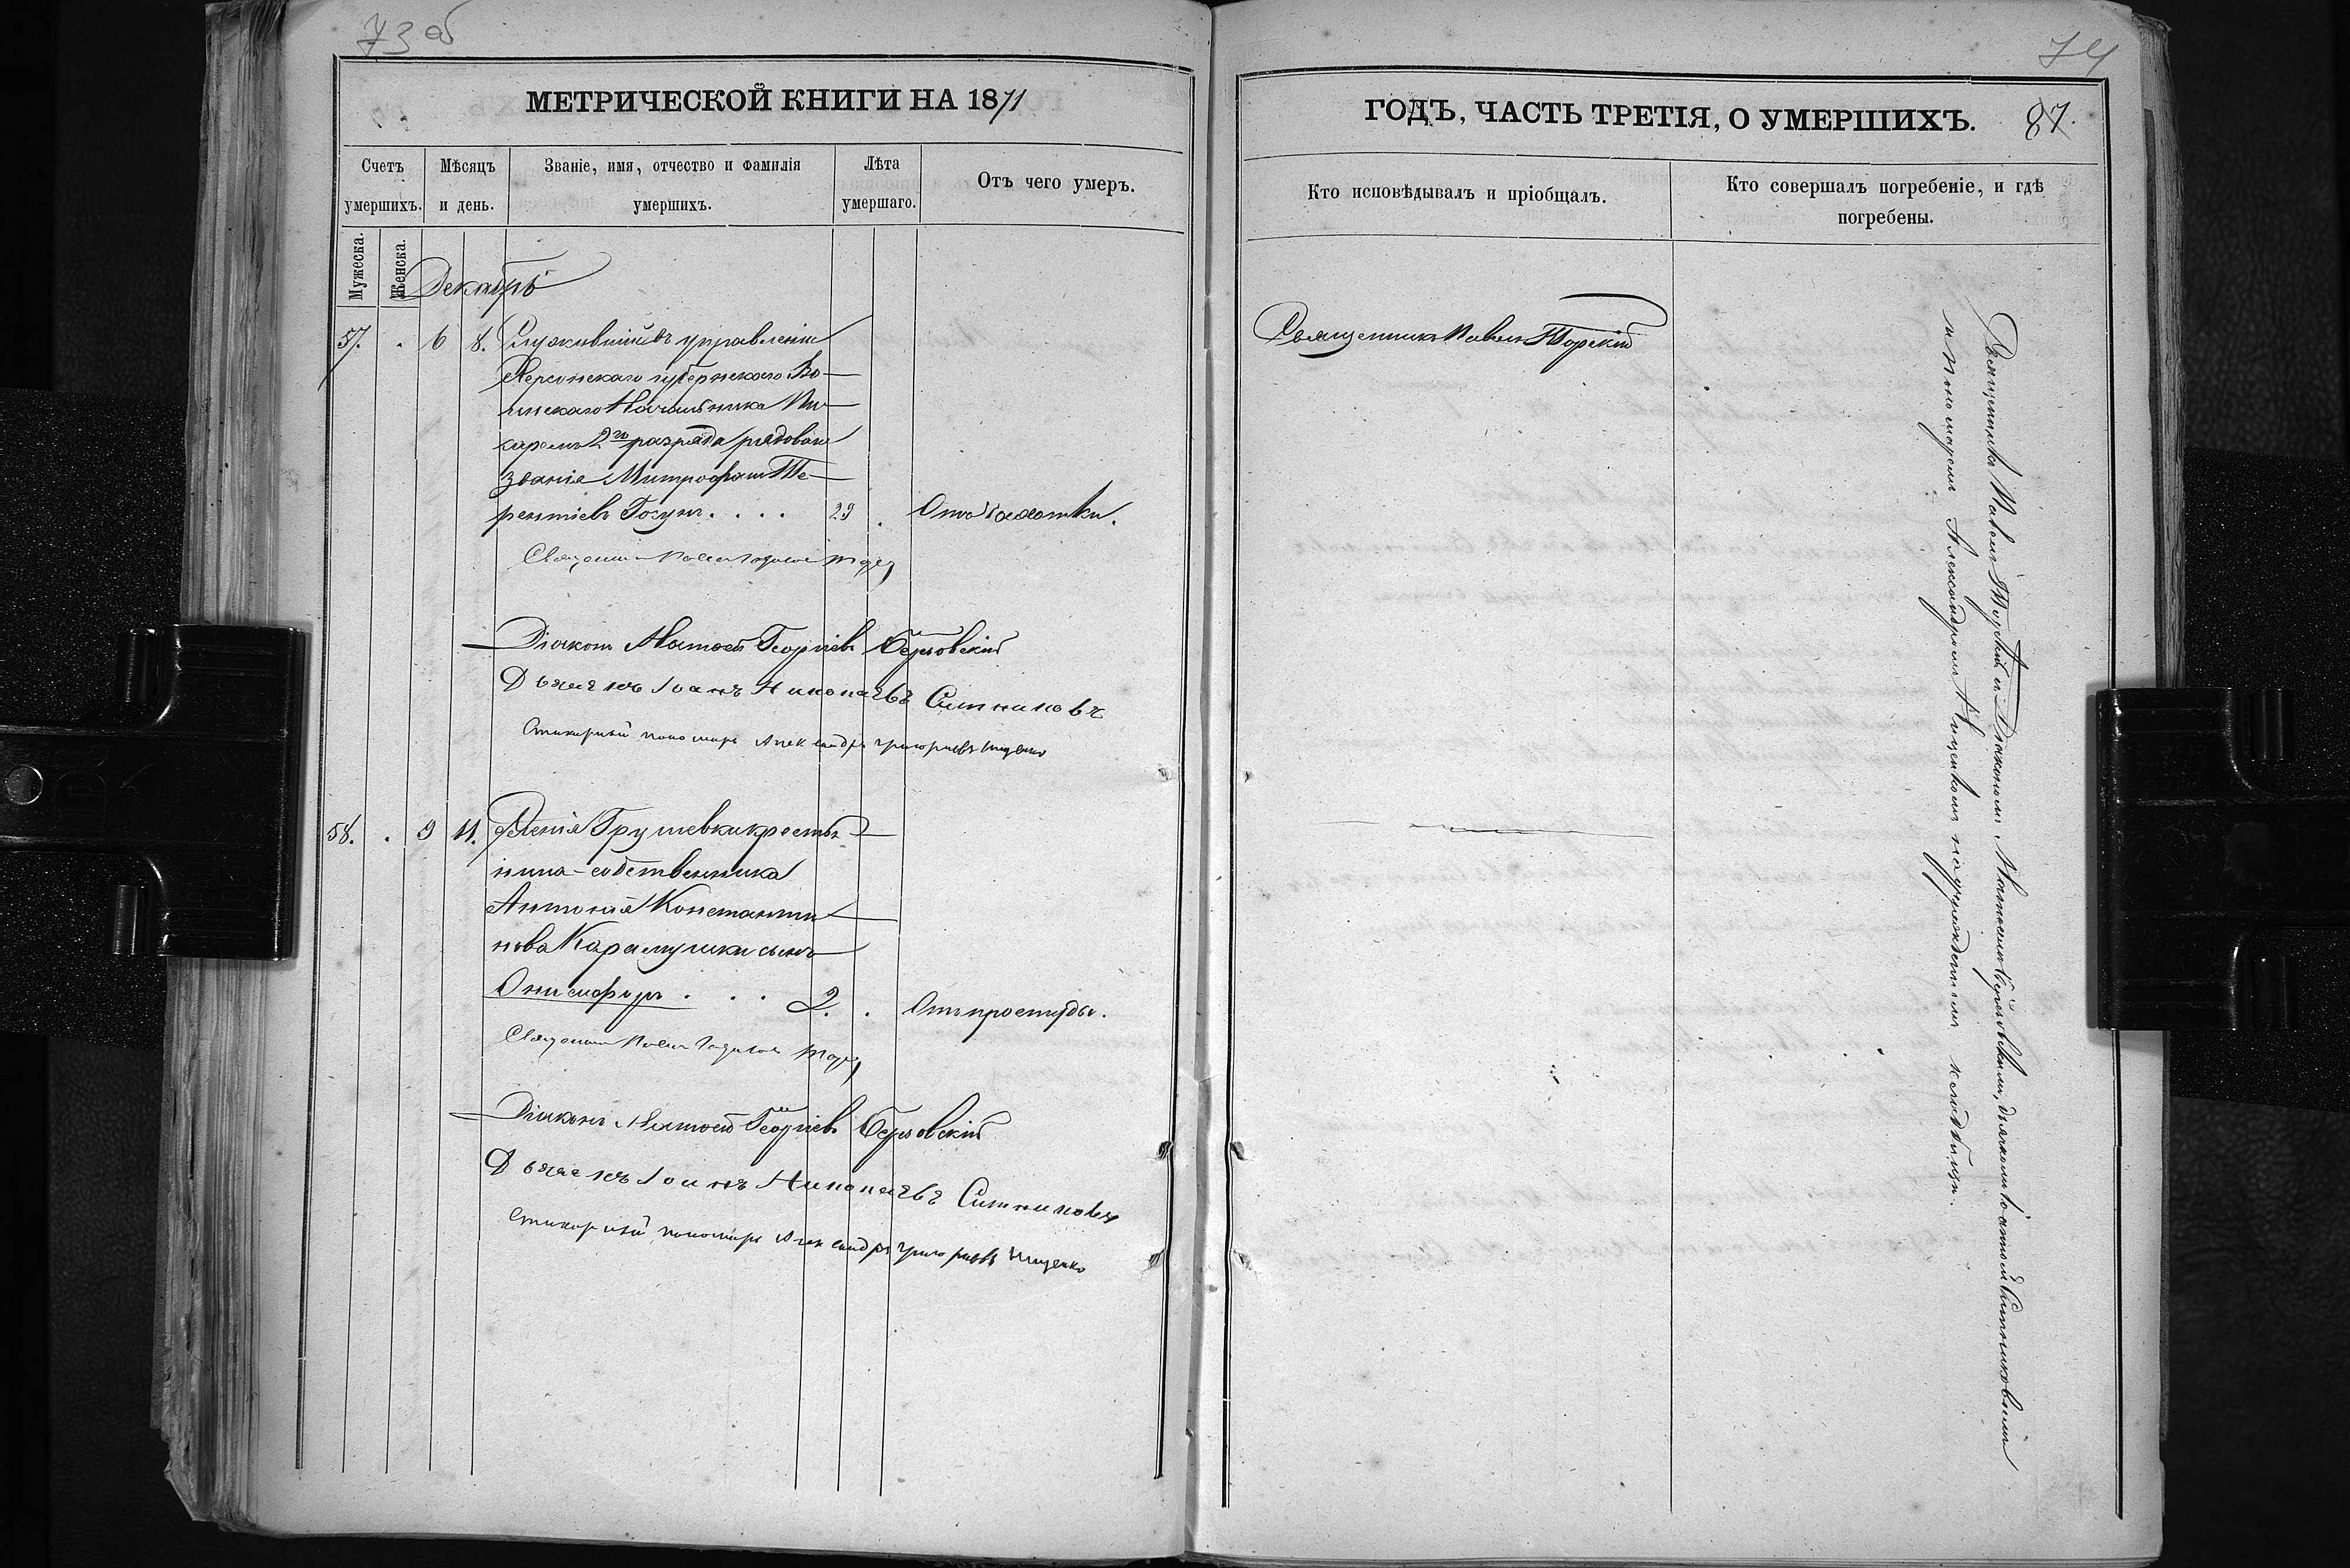 73 об
МЕТРИЧЕСКОЙ КНИГИ НА 1871
Счетъ умершихъ.
Мужеска.
Женска.
Мѣсяцъ и день.
Званіе, имя, отчество и фамилія умершихъ.
Лѣта умершаго.
Отъ чего умеръ.
Декабрь
57. . 6 8. Служившій въ управленіи
Херсонскаго губернскаго Во-
инскаго Начальника Пи-
саремъ 2го разряда рядовой
званія Митрофанъ Те-
рентіевъ . . . . 29 . Отъ чахотки.
Священникъ Павелъ
Діаконъ Матѳей Георгіевъ
Дьячекъ Іоаннъ Николаевъ Ситниковъ
Стихарный пономарь Александръ Григорьевъ Ищенко
58. . 9 11. Селенія Грушевки крестья-
нина-собственника
Антонія Константи-
нова Карамушки сынъ
Онисифоръ . . . 2. . Отъ простуды.
Священникъ Павелъ
Діаконъ Матѳей Георгіевъ
Дьячекъ Іоаннъ Николаевъ Ситниковъ
Стихарный пономарь Александръ Григорьевъ Ищенко
74
ГОДЪ, ЧАСТЬ ТРЕТІЯ, О УМЕРШИХЪ. 87.
Кто исповѣдывалъ и пріобщалъ.
Кто совершалъ погребеніе, и гдѣ погребены.
Священникъ Павелъ Торскій
Священникъ Павелъ Торскій съ Діакономъ Матѳеемъ дьячкомъ Іоанномъ Ситниковымъ
и пономаремъ Александромъ Ищенкомъ на кладбищѣ.